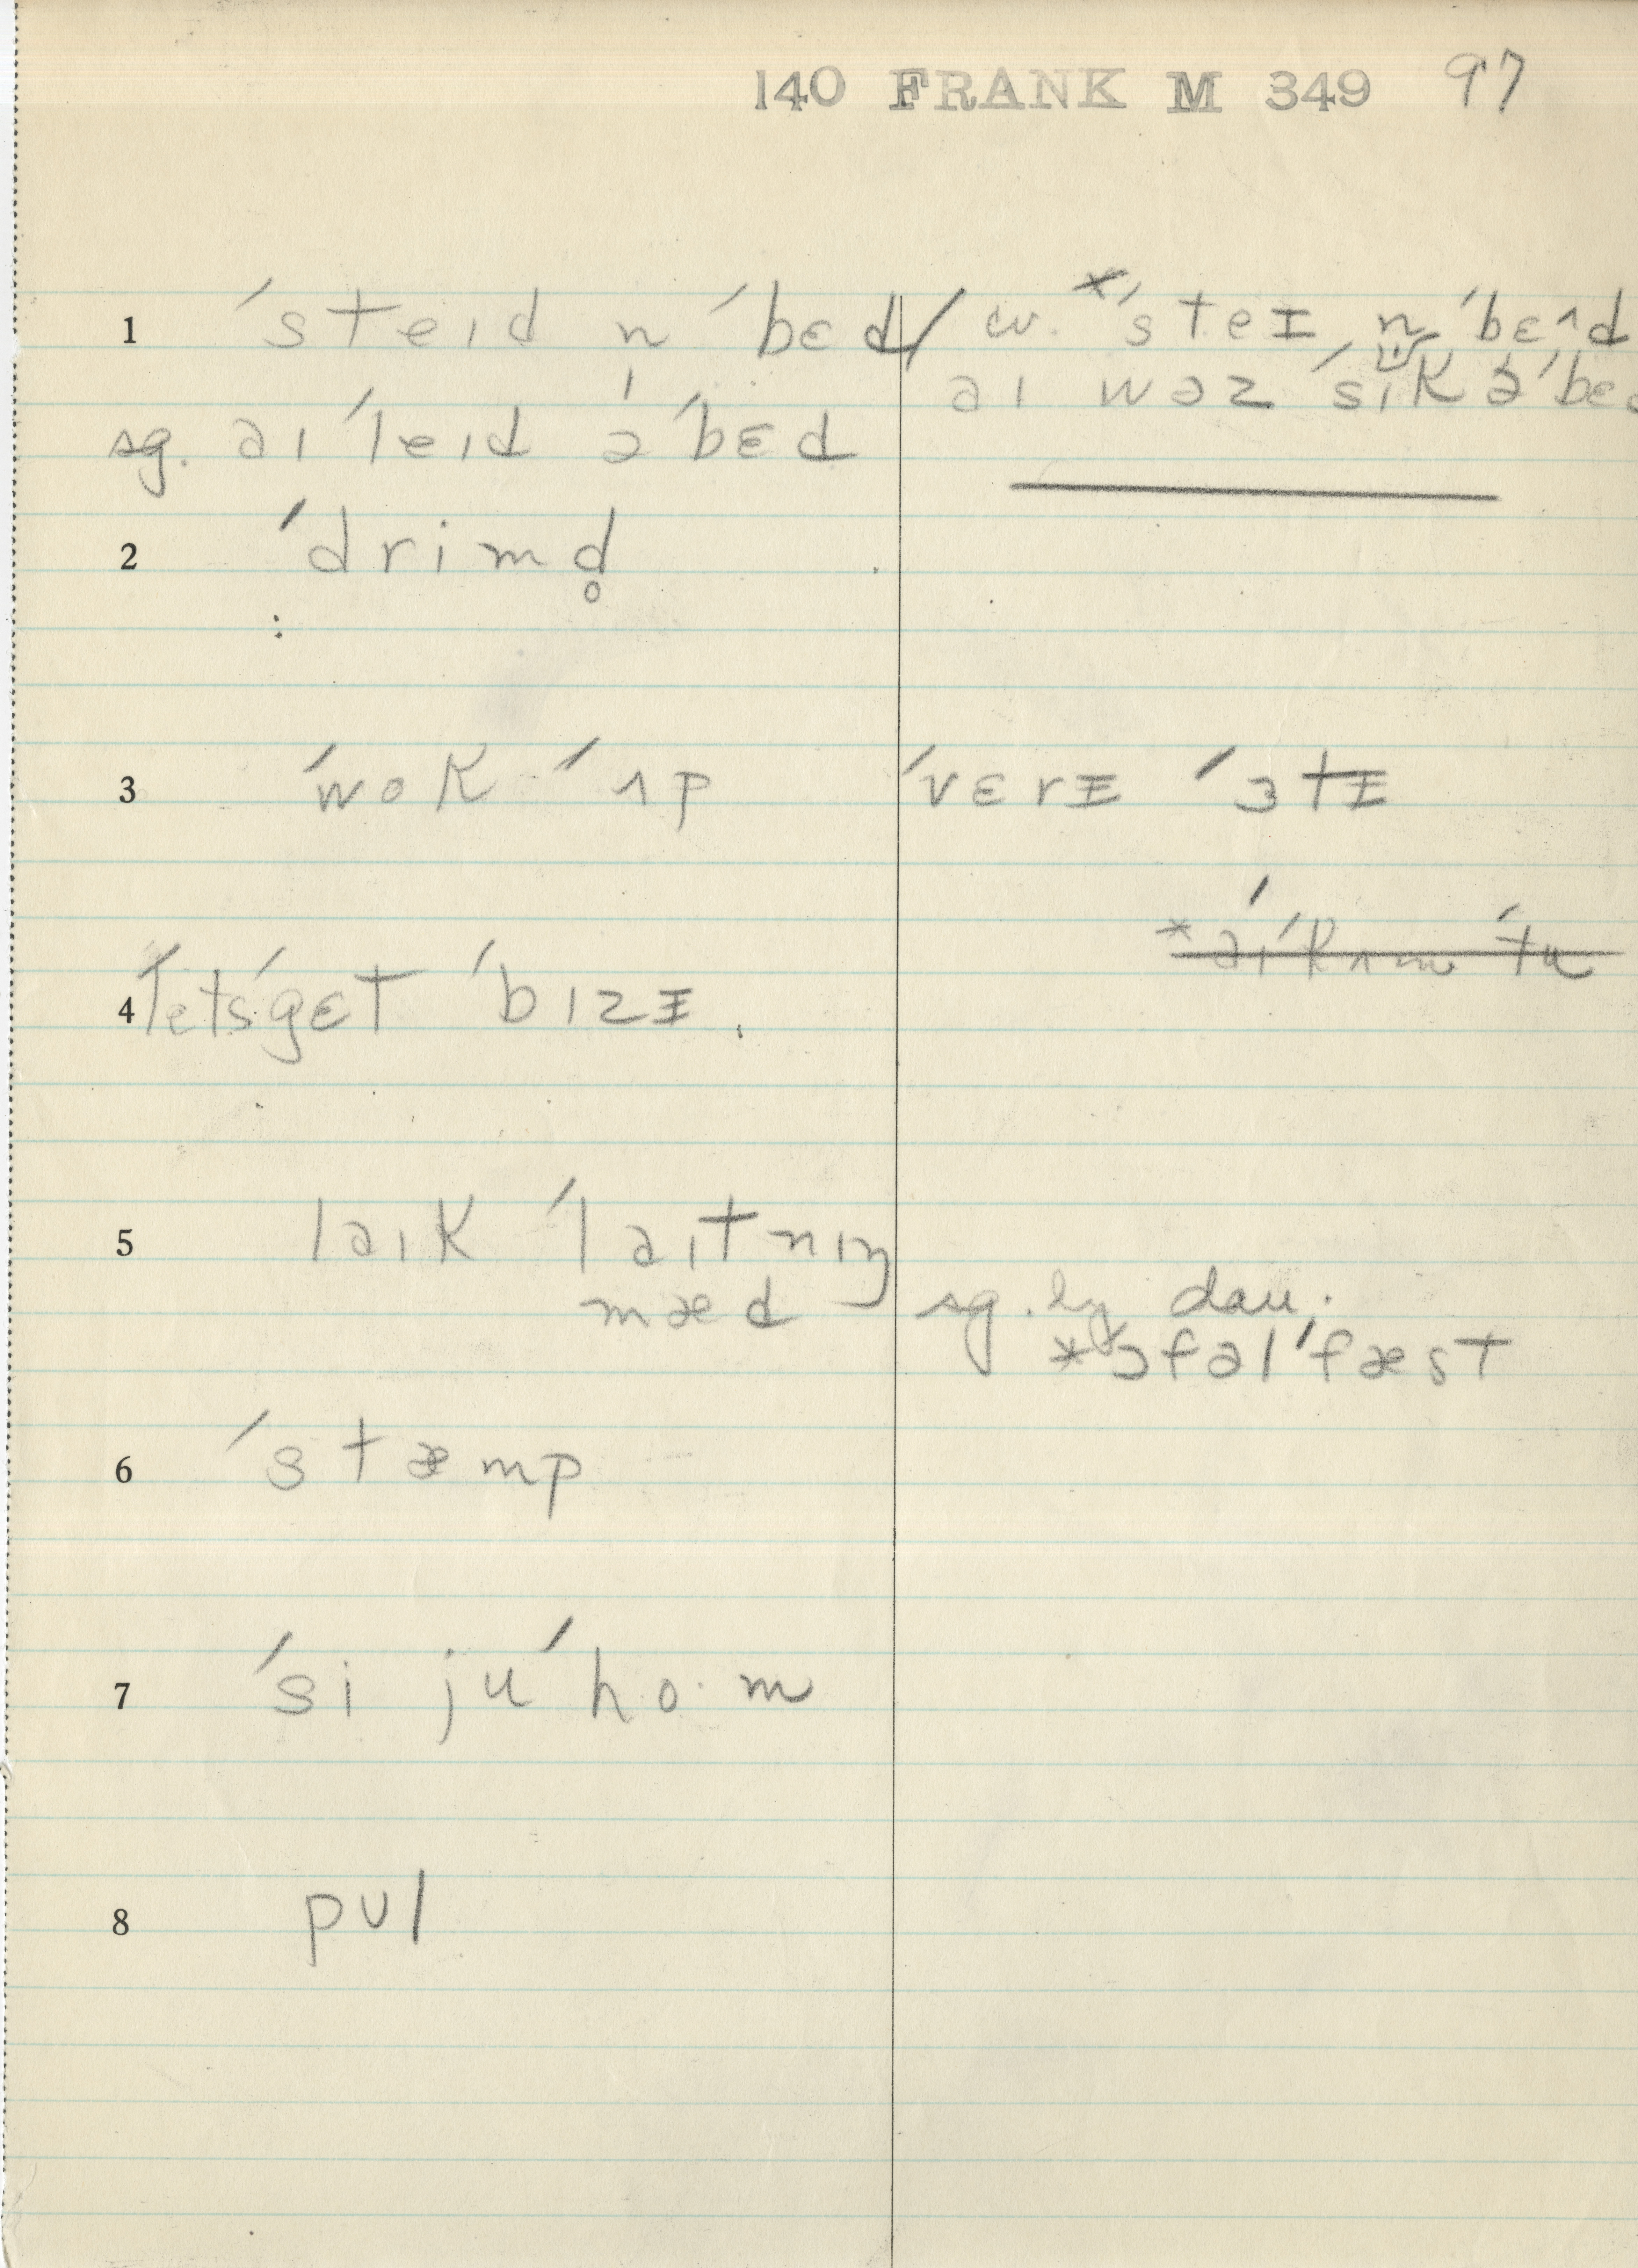 140 FRANK M 349 97
1 ˈsteɪd n̩ ˈbɛd / w. *ˈsteɪ n̩ ˈbɛ^d
əɪ wəz ˈsɪk əˈbɛd
sg. əɪ ˈleɪd əˈbɛd
2 ˈdrimd̥
3 ˈwok ˈʌp ˈvɛrɪ ˈɜtɪ
*əɪ ˈkʌm ˈtu
4 ˈletsˈgɛt ˈbɪzɪ.
5 ləɪk ˈləɪtnɪŋ
mæd sg. by dau.
*ɔfəlˈfæst
6 ˈstæmp
7 ˈsi juˈho·m
8 pʊl